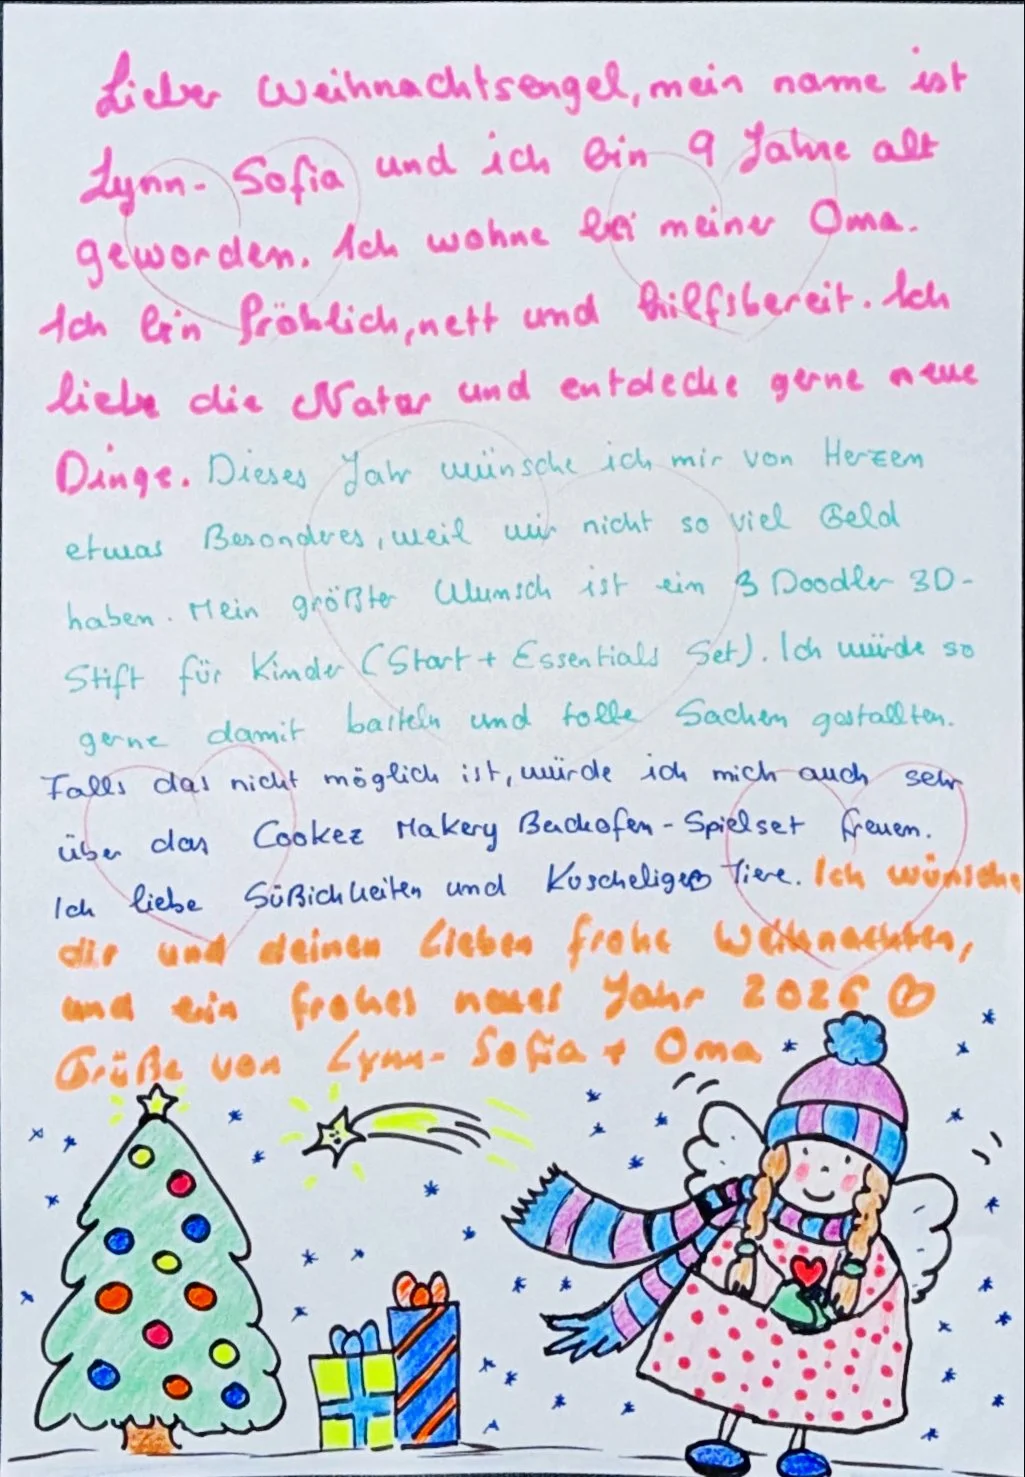 Lieber Weihnachtsengel, mein name ist
Lynn-Sofia und ich bin 9 Jahre alt
geworden. Ich wohne bei meiner Oma.
Ich bin fröhlich, nett und hilfsbereit. Ich
liebe die Natur und entdecke gerne neue
Dinge. Dieses Jahr wünsche ich mir von Herzem
etwas Besonderes, weil wir nicht so viel Geld
haben. Mein größter Wunsch ist ein 3 Doodler 3D-
Stift für Kinder (Start + Essentials Set). Ich würde so
gerne damit basteln und tolle Sachen gestallten.
Falls das nicht möglich ist, würde ich mich auch sehr
über das Cookeez Makery Backofen-Spielset freuen.
Ich liebe Süßichkeiten und Kuscheliges Tiere. Ich wünsche
dir und deinen Lieben frohe Weihnachten,
und ein frohes neues Jahr 2026
Grüße von Lynn-Sofia + Oma